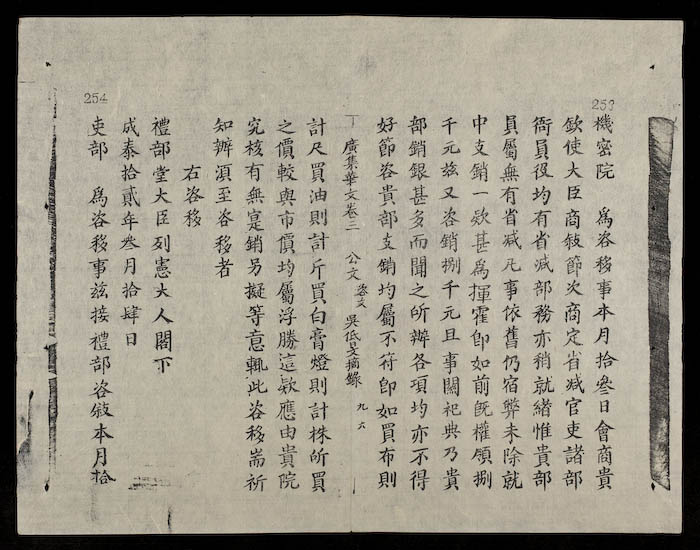 253
機密院 爲咨移事本月拾叄日會商貴
欽使大臣商敍節次商定省減官吏諸部
衙員役均有省減部務亦稍就緒惟貴部
員屬無有省減凡事依舊仍宿弊未除就
中支銷一欵甚爲揮霍卽如前旣權領捌
千元兹又咨銷捌千元且事關祀典乃貴
部銷銀甚多而聞之所辦各項均亦不得
好節咨貴部支銷均屬不符卽如買布則
廣集華文卷三 公文 咨文 吳低旻摘錄 九六
計尺買油則計斤買白膏燈則計株所買
之價較與市價均屬浮勝這欵應由貴院
究核有無寔銷另擬等意輒此咨移耑祈
知辦湏至咨移者
右咨移
禮部堂大臣列憲大人閣下
成泰拾貳年叄月拾肆日
254
吏部 爲咨移事兹接禮部咨敍本月拾